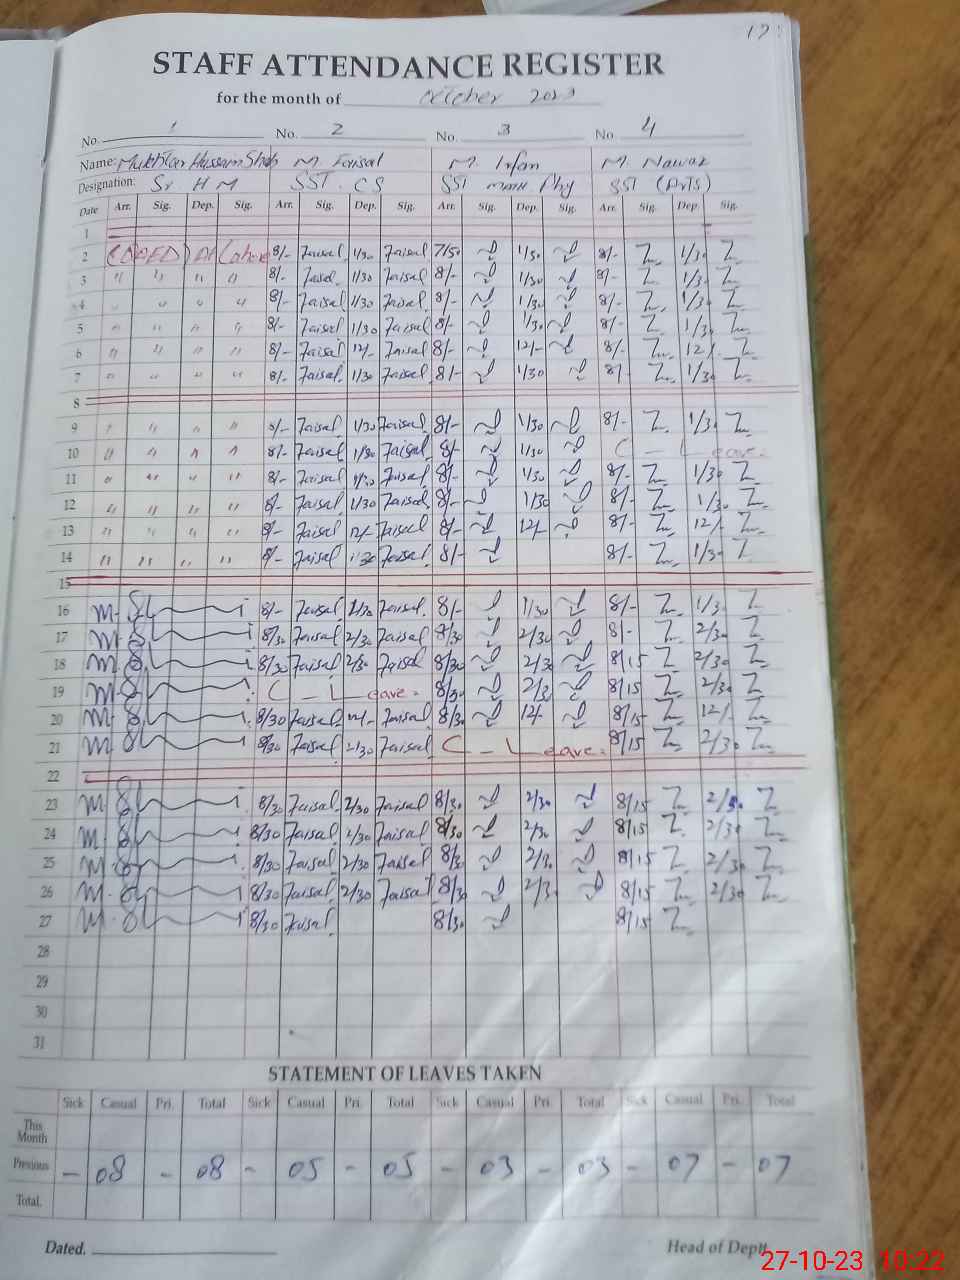 17
STAFF ATTENDANCE REGISTER
for the month of October 2023
No. 1 No. 2 No. 3 No. 4
Name: Mukhtar Hussain Shah M. Faisal M. Irfan M. Nawaz
Designation: Sr H M SST. CS SST MATH Phy SST (Arts)
Date Arr. Sig. Dep. Sig. Arr. Sig. Dep. Sig. Arr. Sig. Dep. Sig. Arr. Sig. Dep. Sig.
1
2 8/- Faisal 1/30 Faisal 7/50 1/30 8/- 1/30
3 " " " " 8/- Faisal 1/30 Faisal 8/- 1/30 8/- 1/30
4 " " " " 8/- Faisal 1/30 Faisal 8/- 1/30 8/- 1/30
5 " " " " 8/- Faisal 1/30 Faisal 8/- 1/30 8/- 1/30
6 " " " " 8/- Faisal 12/- Faisal 8/- 12/- 8/- 12/-
7 " " " " 8/- Faisal 1/30 Faisal 8/- 1/30 8/- 1/30
8
9 " " " " 8/- Faisal 1/30 Faisal 8/- 1/30 8/- 1/30
10 " " " " 8/- Faisal 1/30 Faisal 8/- 1/30 C - Leave.
11 " " " " 8/- Faisal 1/30 Faisal 8/- 1/30 8/- 1/30
12 " " " " 8/- Faisal 1/30 Faisal 8/- 1/30 8/- 1/30
13 " " " " 8/- Faisal 12/- Faisal 8/- 12/- 8/- 12/-
14 " " " " 8/- Faisal 1/30 Faisal 8/- 8/- 1/30
15
16 8/- Faisal 1/30 Faisal 8/- 1/30 8/- 1/30
17 8/30 Faisal 2/30 Faisal 8/30 2/30 8/- 2/30
18 8/30 Faisal 2/30 Faisal 8/30 2/30 8/15 2/30
19 C - Leave. 8/30 2/30 8/15 2/30
20 8/30 Faisal 12/- Faisal 8/30 12/- 8/15 12/-
21 8/30 Faisal 2/30 Faisal C - Leave. 8/15 2/30
22
23 8/30 Faisal 2/30 Faisal 8/30 2/30 8/15 2/30
24 8/30 Faisal 2/30 Faisal 8/30 2/30 8/15 2/30
25 8/30 Faisal 2/30 Faisal 8/30 2/30 8/15 2/30
26 8/30 Faisal 2/30 Faisal 8/30 2/30 8/15 2/30
27 8/30 Faisal 8/30 8/15
28
29
30
31
STATEMENT OF LEAVES TAKEN
Sick Casual Pri. Total Sick Casual Pri. Total Sick Casual Pri. Total Sick Casual Pri. Total
This Month
Previous - 08 - 08 - 05 - 05 - 03 - 03 - 07 - 07
Total.
Dated. Head of Deptt.
27-10-23 10:22